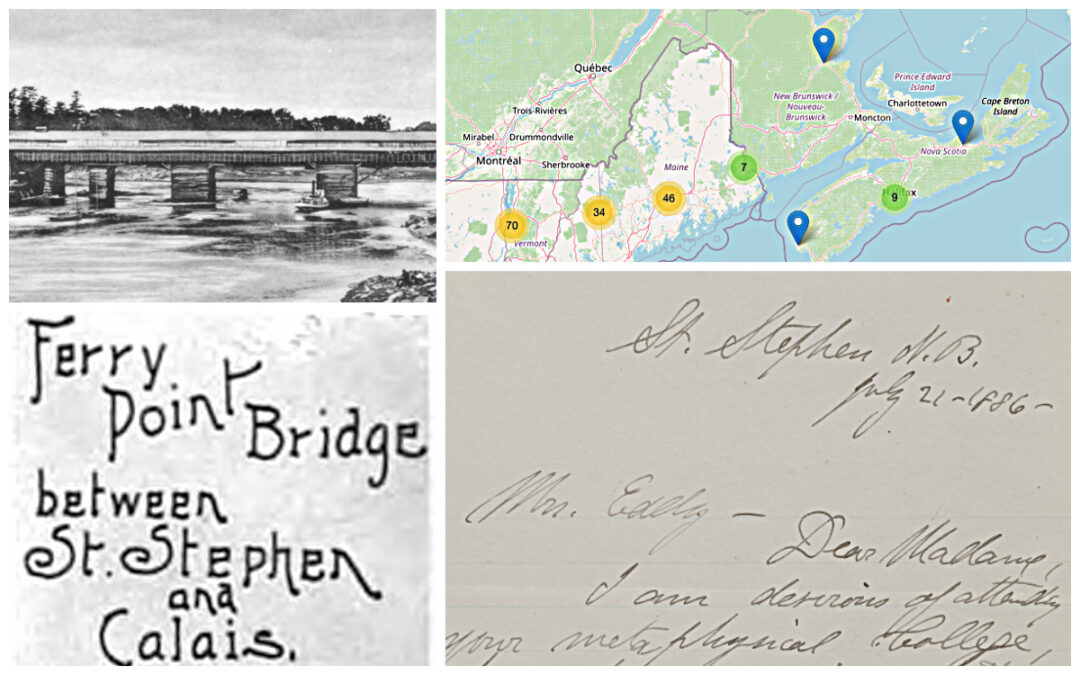 Québec
Trois-Rivières
Mirabel
Drummondville
Montréal
Sherbrooke
Maine
Vermont
New Brunswick /
Nouveau-
Brunswick
Moncton
Prince Edward
Island
Charlottetown
Cape Breton
Island
Nova Scotia
70
34
46
7
9
Ferry
Point
Bridge
between
St. Stephen
and
Calais.
St. Stephen N.B.
July 21-1886-
Mrs. Eddy —
Dear Madame,
I am desirous of attending
your metaphysical College,